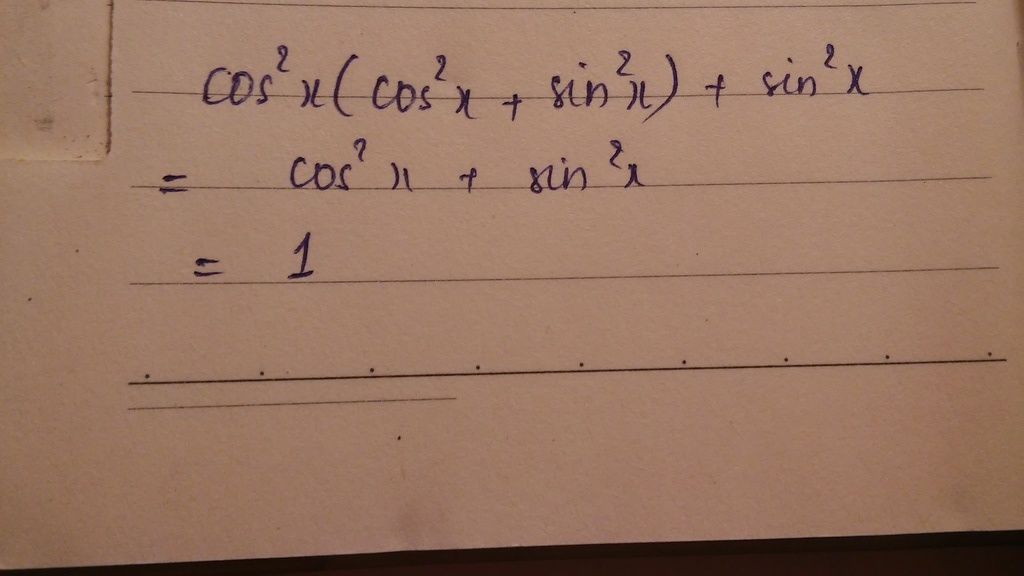 cos²x(cos²x + sin²x) + sin²x
= cos²x + sin²x
= 1